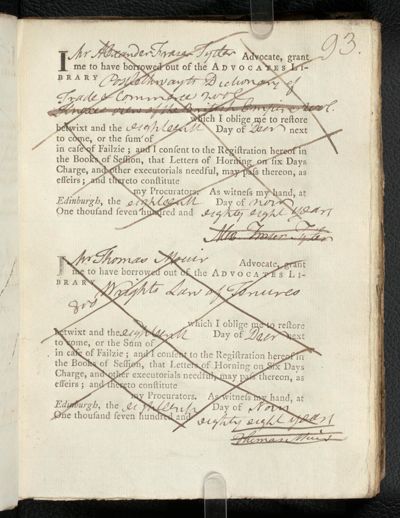 93.
I Mr Alexander Fraser Tytler Advocate, grant
me to have borrowed out of the ADVOCATES LI-
BRARY Postlethwayts Dictionary of
Trade & Commerce
which I oblige me to reſtore
betwixt and the eighteenth Day of Decr next
to come, or the sum of
in caſe of Failzie; and I conſent to the Regiſtration hereof in
the Books of Seſſion, that Letters of Horning on ſix Days
Charge, and other executorials needful, may paſs thereon, as
effeirs; and thereto conſtitute
my Procurators. As witneſs my hand, at
Edinburgh, the eighteenth Day of Novr
One thouſand ſeven hundred and eighty eight years
Alexr Fraser Tytler
I Mr Thomas Muir Advocate, grant
me to have borrowed out of the ADVOCATES LI-
BRARY Wrights Law of Tenures
8vo
which I oblige me to reſtore
betwixt and the eighteenth Day of Decr next
to come, or the Sum of
in caſe of Failzie; and I conſent to the Regiſtration hereof in
the Books of Seſſion, that Letters of Horning on Six Days
Charge, and other executorials needful, may paſs thereon, as
effeirs; and thereto conſtitute
my Procurators. As witneſs my hand, at
Edinburgh, the eighteenth Day of Novr
One thouſand ſeven hundred and eighty eight years
Thomas Muir